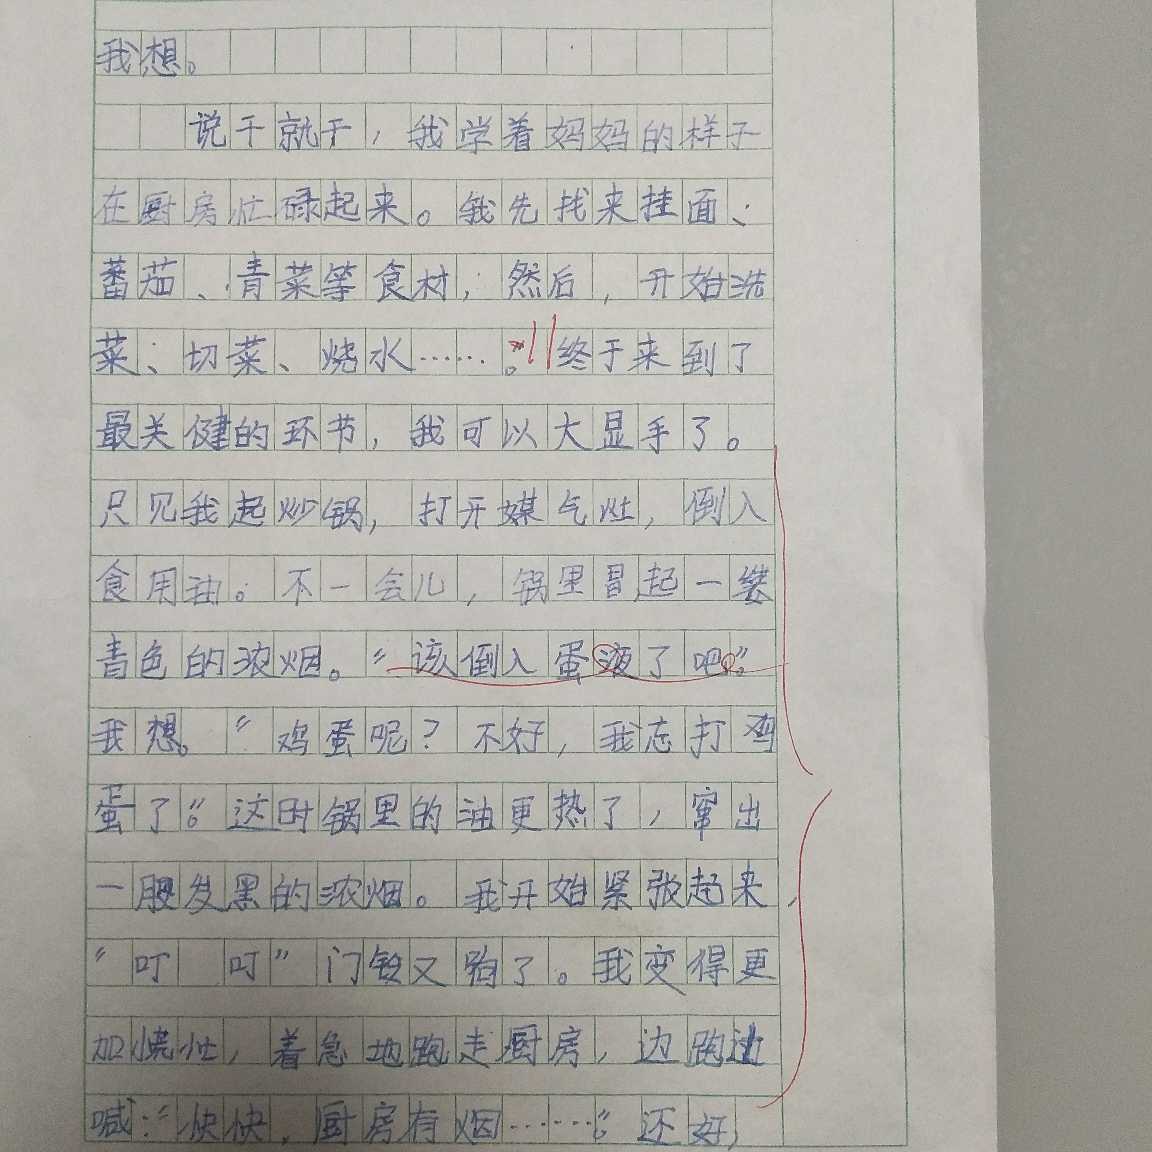 我想。
说干就干，我学着妈妈的样子
在厨房忙碌起来。我先找来挂面、
蕃茄、青菜等食材，然后，开始洗
菜、切菜、烧水……。终于来到了
最关健的环节，我可以大显手了。
只见我起炒锅，打开媒气灶，倒入
食用油。不一会儿，锅里冒起一缕
青色的浓烟。“该倒入蛋液了吧。”
我想。“鸡蛋呢？不好，我忘打鸡
蛋了。”这时锅里的油更热了，窜出
一股发黑的浓烟。我开始紧张起来，
“叮 叮”门铃又响了。我变得更
加慌忙，着急地跑走厨房，边跑边
喊：“快快，厨房有烟……。”还好，